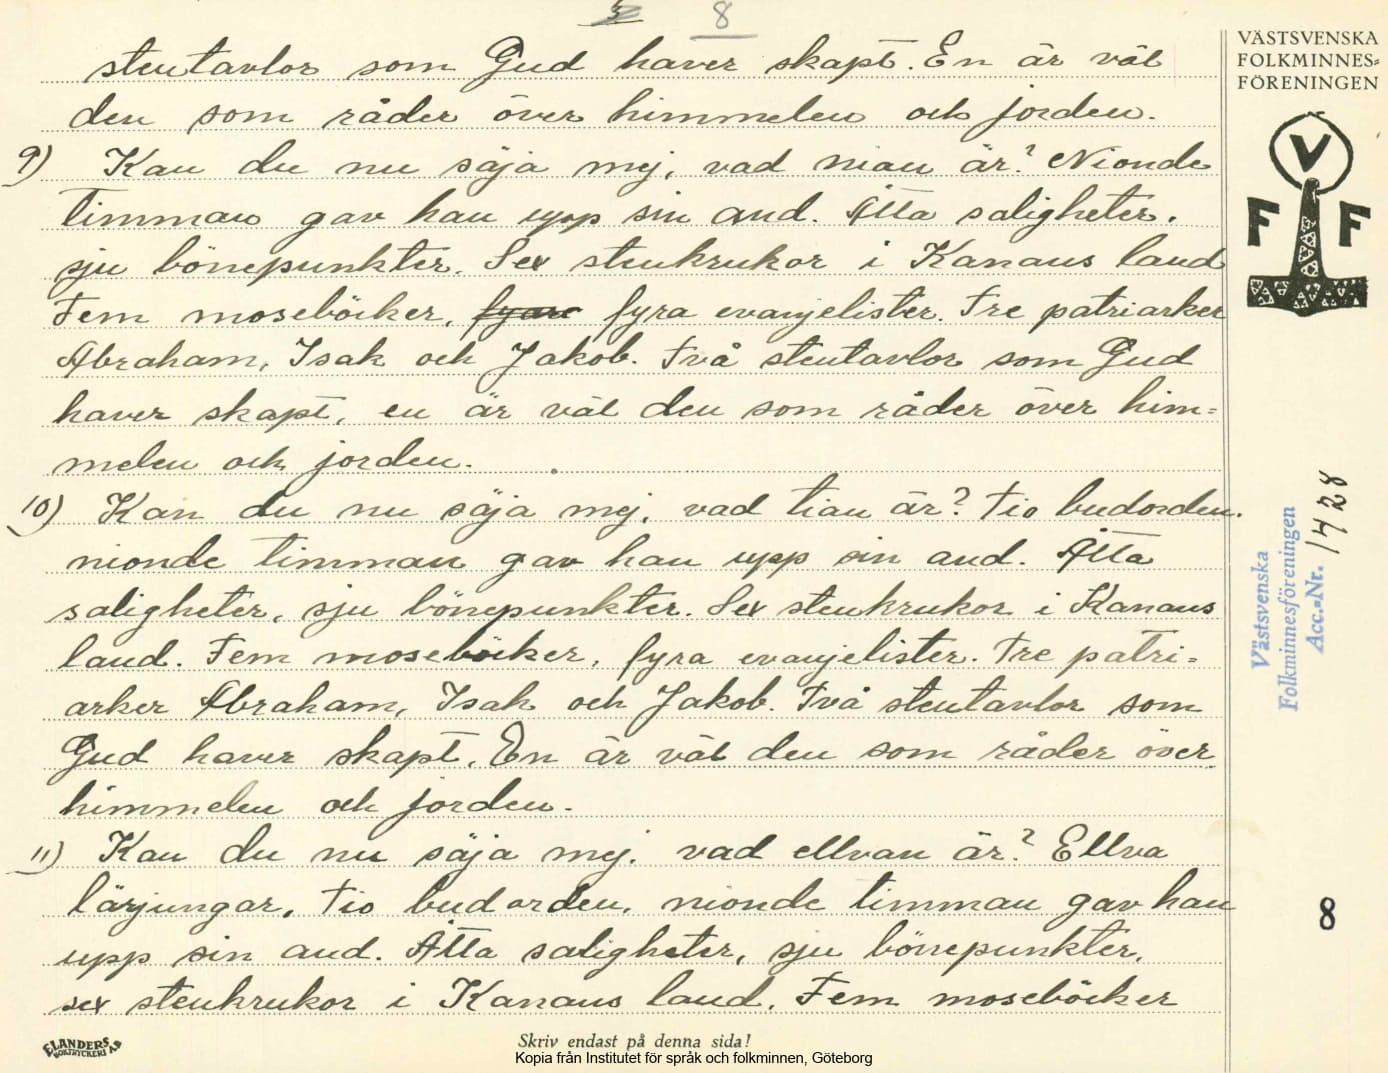 3 8
stentavlor som Gud haver skapt. En är väl
den som råder över himmelen och jorden.
9) Kan du nu säja mej, vad nian är? Nionde
timman gav han upp sin and. Åtta saligheter,
sju bönepunkter. Sex stenkrukor i Kanans land
Fem moseböcker, fyra evanjelister. Tre patriarker
Abraham, Isak och Jakob. Två stentavlor som Gud
haver skapt, en är väl den som råder över him=
melen och jorden.
10) Kan du nu säja mej, vad tian är? Tio budorden.
nionde timman gav han upp sin and. Åtta
saligheter, sju bönepunkter. Sex stenkrukor i Kanans
land. Fem moseböcker, fyra evanjelister. Tre patri=
arker Abraham, Isak och Jakob. Två stentavlor som
Gud haver skapt. En är väl den som råder över
himmelen och jorden.
11) Kan du nu säja mej, vad ellvan är? Ellva
lärjungar, Tio budorden, nionde timman gav han
upp sin and. Åtta saligheter, sju bönepunkter,
sex stenkrukor i Kanans land. Fem moseböcker
ELANDERS BOKTRYCKERI AB
Skriv endast på denna sida!
Kopia från Institutet för språk och folkminnen, Göteborg
VÄSTSVENSKA
FOLKMINNES=
FÖRENINGEN
V
F F
Västsvenska
Folkminnesföreningen
Acc.=Nr. 1428
8